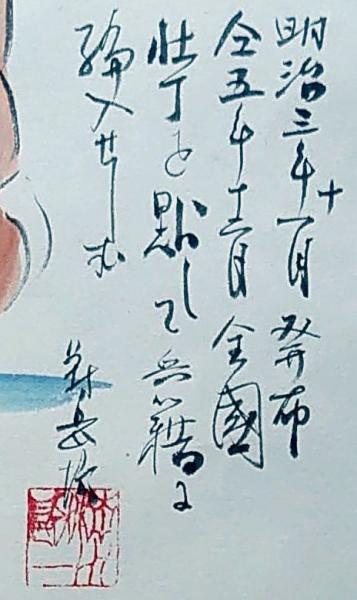 明治三年十一月発布
仝五年十二月全國
壯丁を點して兵籍に
編入せしむ